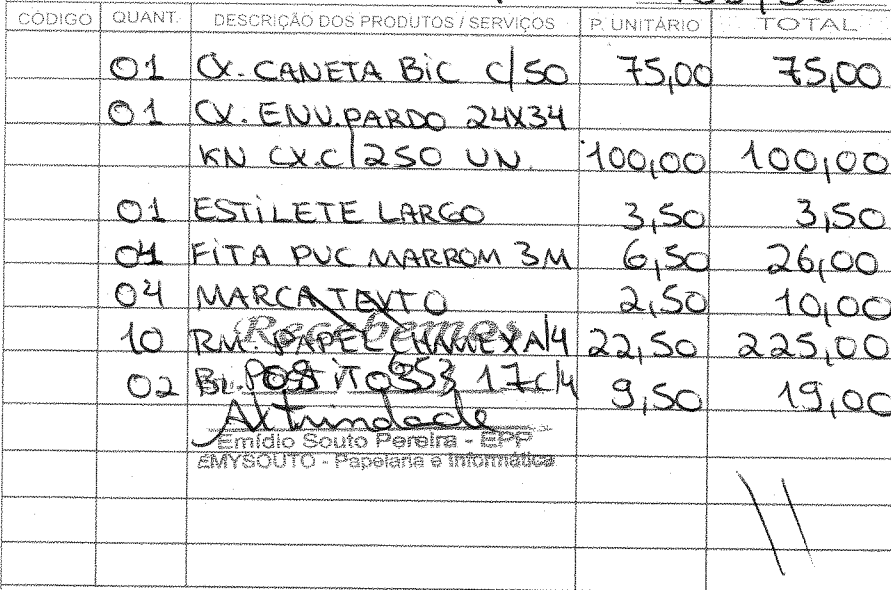 CÓDIGO QUANT. DESCRIÇÃO DOS PRODUTOS / SERVIÇOS P. UNITÁRIO TOTAL
01 CX. CANETA BIC C/50 75,00 75,00
01 CX. ENV. PARDO 24X34
KN CX.C/250 UN. 100,00 100,00
01 ESTILETE LARGO 3,50 3,50
04 FITA PVC MARROM 3M 6,50 26,00
04 MARCA TEXTO 2,50 10,00
Recebemos
10 RM. PAPEL CHAMEX A/4 22,50 225,00
02 BL. POST IT 653 C/4 9,50 19,00
Emídio Souto Pereira - EPP
EMYSOUTO - Papelaria e Informática